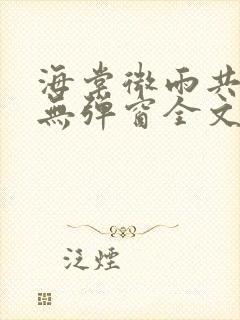 海棠微雨共
無彈窗全文
泛煙